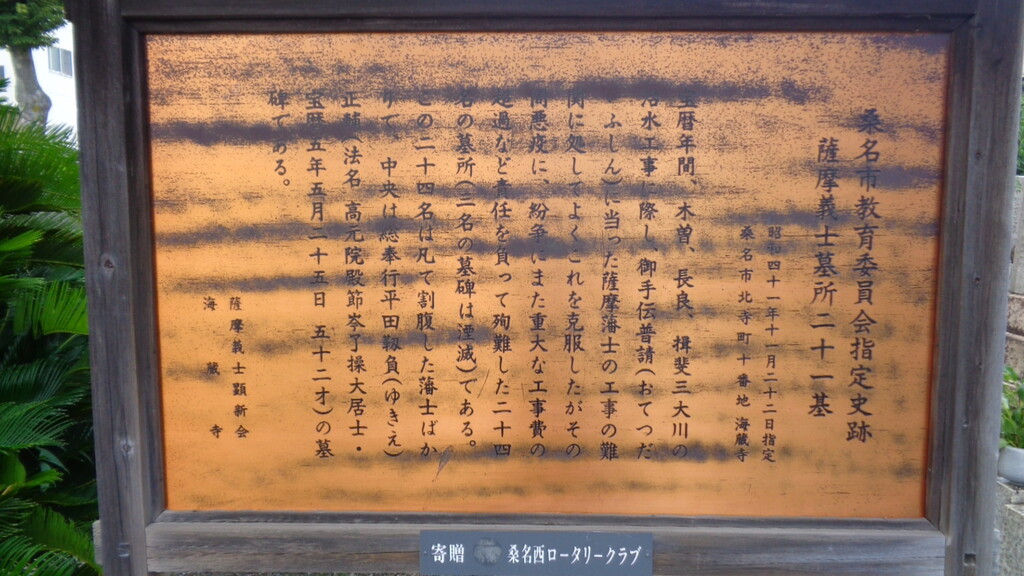 桑名市教育委員会指定史跡
薩摩義士墓所二十一基
昭和四十一年十一月二十二日指定
桑名市北寺町十番地 海蔵寺
宝暦年間、木曽、長良、揖斐三大川の
治水工事に際し、御手伝普請(おてつだ
いふしん)に当った薩摩藩士の工事の難
関に処してよくこれを克服したがその
間悪疫に、紛争にまた重大な工事費の
超過など責任を負って殉難した二十四
名の墓所(三名の墓碑は湮滅)である。
この二十四名は凡て割腹した藩士ばか
りで、中央は総奉行平田靱負(ゆきえ)
正輔(法名、高元院殿節岑了操大居士・
宝暦五年五月二十五日 五十二才)の墓
碑である。
薩摩義士顕新会
海蔵寺
寄贈 桑名西ロータリークラブ